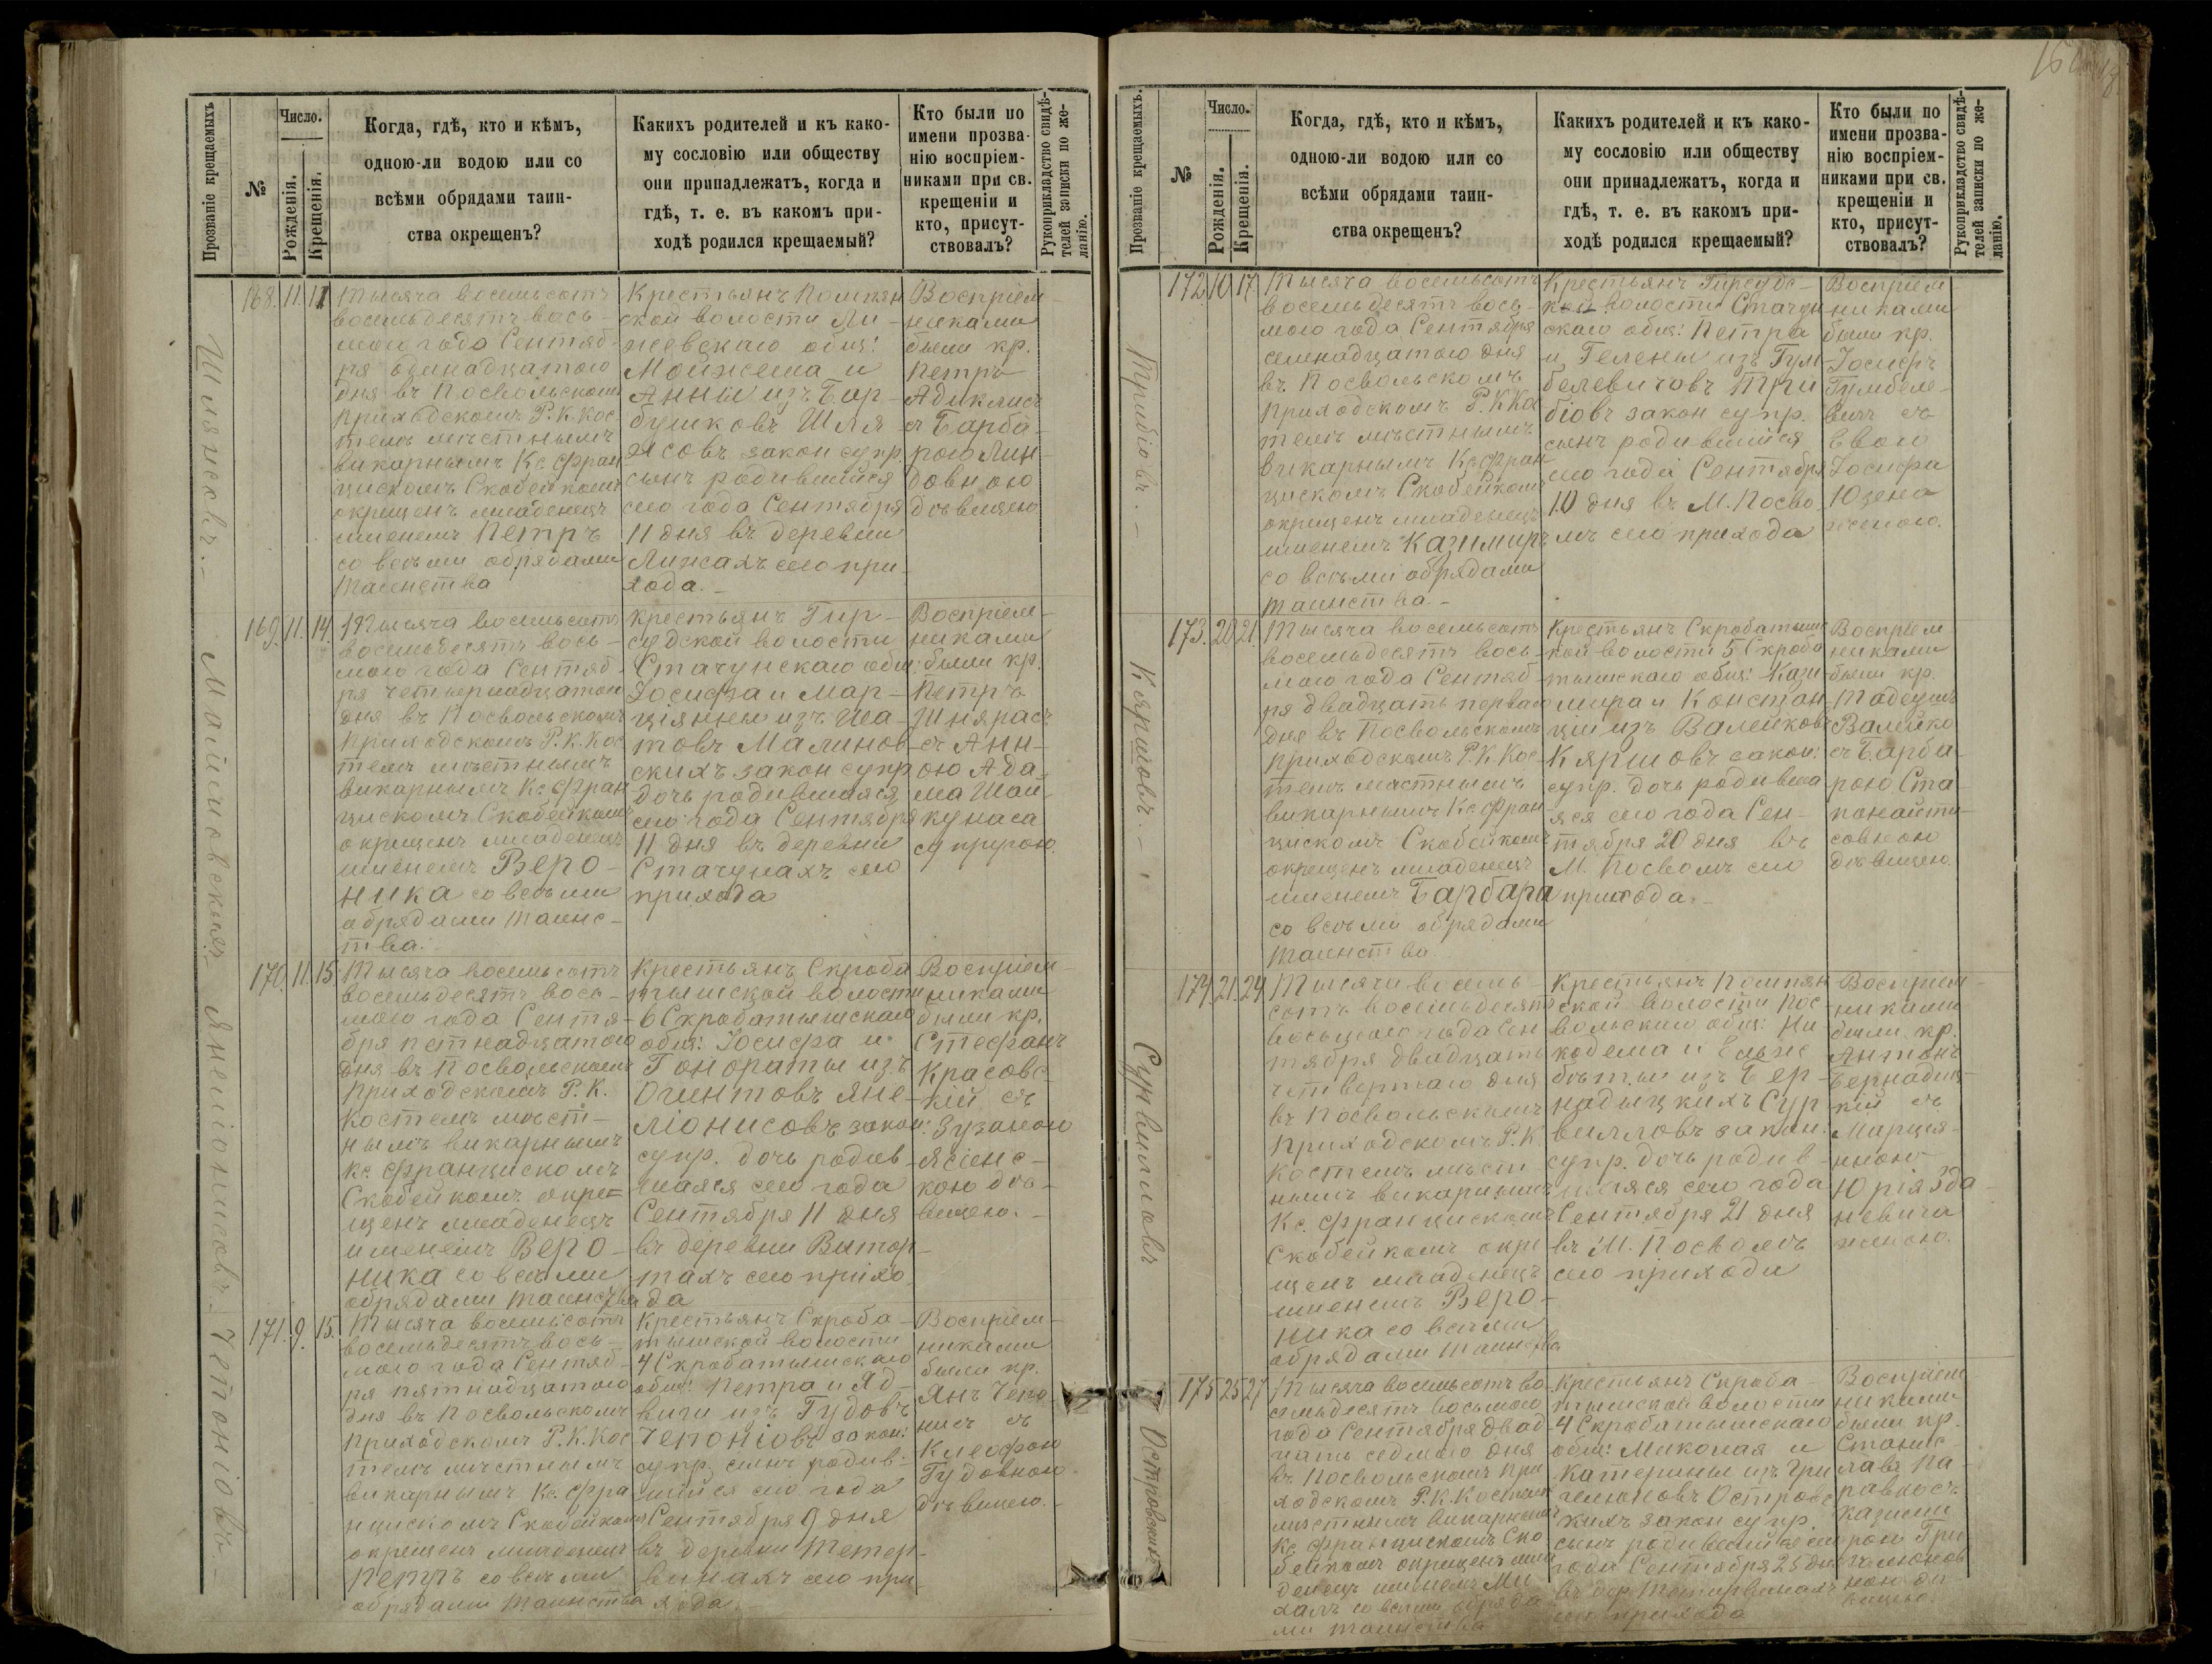 Прозваніе крещаемыхъ
№
Число.
Рожденія.
Крещенія.
Когда, гдѣ, кто и кѣмъ,
одною-ли водою или со
всѣми обрядами таин-
ства окрещенъ?
Какихъ родителей и къ како-
му сословію или обществу
они принадлежатъ, когда и
гдѣ, т. е. въ какомъ при-
ходѣ родился крещаемый?
Кто были по
имени прозва-
нію воспріем-
никами при св.
крещеніи и
кто, присут-
ствовалъ?
Рукоприкладство свидѣ-
телей записки по же-
ланію.
Шлясовъ.
168. 11. 11
Тысяча восемьсотъ
восемьдесятъ вось-
мого года Сентяб-
ря одинадцатого
дня въ Посвольскомъ
приходскомъ Р. К. Кос
телѣ мѣстнымъ
викарнымъ Кс. Фран
цискомъ Скобейкомъ
окрещенъ младенецъ
именемъ Петръ
со всѣми обрядами
таинства
Крестьянъ Помпян
ской волости
общ:
и
Анны изъ Бар-
бушковъ Шля-
совъ закон супр.
сынъ родившійся
сего года Сентября
11 дня въ деревни
сего при-
хода.-
Воспріем-
никами
были кр.
Петръ
съ Барба-
рою
довною
дѣвицею
Малиновская
169. 11. 14.
Тысяча восемьсотъ
восемьдесятъ вось-
мого года Сентяб-
ря четырнадцатого
дня въ Посвольскомъ
приходскомъ Р. К. Кос
телѣ мѣстнымъ
викарнымъ Кс. Фран
цискомъ Скобейкомъ
окрещенъ младенецъ
именемъ Веро-
ника со всѣми
обрядами таинс-
тва.
Крестьянъ Гир-
судской волости
Стачунскаго общ:
Іосифа и Мар-
ціянны изъ Ша-
товъ Малинов-
скихъ закон супр
дочь родившаяся
сего года Сентября
11 дня въ деревни
Стачунахъ сего
прихода
Воспріем-
никами
были кр.
Петръ
съ Анн-
ою Ада-
ма
супругою.
Янеліонисовъ.
170. 11. 15.
Тысяча восемьсотъ
восемьдесятъ вось-
мого года Сентя-
бря петнадцатого
дня въ Посвольскомъ
приходскомъ Р. К.
Костелѣ мѣст-
нымъ викарнымъ
Кс. Францискомъ
Скобейкомъ окре-
щенъ младенецъ
именемъ Веро-
ника со всѣми
обрядами таинства
Крестьянъ Скроба
тышской волости
6 Скробатышскаго
общ: Іосифа и
Гонораты изъ
Огинтовъ Яне-
ліонисовъ закон:
супр. дочь родив-
шаяся сего года
Сентября 11 дня
въ деревни
сего прихо
да
Воспріем-
никами
были кр.
Стефанъ
Красовс-
кій съ
Зузаною
Ясіенс-
кою дѣ-
вицею.-
Чепоніовъ.-
171. 9. 15.
Тысяча восемьсотъ
восемьдесятъ вось-
мого года Сентяб-
ря пятнадцатого
дня въ Посвольскомъ
приходскомъ Р. К. Кос
телѣ мѣстнымъ
викарнымъ Кс. Фра
нцискомъ Скобейкомъ
окрещенъ младенецъ
Петръ со всѣми
обрядами таинства
Крестьянъ Скроба-
тышской волости
4 Скробатышскаго
общ: Петра и Яд-
виги изъ Гудовъ
Чепоніовъ закон:
супр. сынъ родив-
шійся сего года
Сентября 9 дня
въ деревни Тетер-
винахъ сего при-
хода.-
Воспріем-
никами
были кр.
Янъ Чепо
нисъ съ
Клеофою
Гудовною
дѣвицею.-
Прозваніе крещаемыхъ.
№
Число.
Рожденія.
Крещенія.
Когда, гдѣ, кто и кѣмъ,
одною-ли водою или со
всѣми обрядами таин-
ства окрещенъ?
Какихъ родителей и къ како-
му сословію или обществу
они принадлежатъ, когда и
гдѣ, т. е. въ какомъ при-
ходѣ родился крещаемый?
Кто были по
имени прозва-
нію воспріем-
никами при св.
крещеніи и
кто, присут-
ствовалъ?
Рукоприкладство свидѣ-
телей записки по же-
ланію.
Трибіовъ.-
172. 10. 17.
Тысяча восемьсотъ
восемьдесятъ вось-
мого года Сентября
семнадцатого дня
въ Посвольскомъ
приходскомъ Р. К. Кос
телѣ мѣстнымъ
викарнымъ Кс. Фран
цискомъ Скобейкомъ
окрещенъ младенецъ
именемъ Казимиръ
со всѣми обрядами
таинства.-
Крестьянъ Гирсудс-
кой волости Стачун
скаго общ: Петра
и Гелены изъ Гум-
белевичовъ Три
біовъ закон супр.
сынъ родившійся
сего года Сентября
10 дня въ М. Посво
лѣ сего прихода
Воспріем
никами
были кр.
Іосифъ
Гумбеле-
вичъ съ
вдою
Іосифа
женою.
Кяршовъ.-
173. 20. 21.
Тысяча восемьсотъ
восемьдесятъ вось-
мого года Сентяб-
ря двадцать перваго
дня въ Посвольскомъ
приходскомъ Р. К. Кос
телѣ мѣстнымъ
викарнымъ Кс. Фран
цискомъ Скобейкомъ
окрещенъ младенецъ
именемъ Барбара
со всѣми обрядами
таинства
Крестьянъ Скробатыш
кой волости 5 Скроба
тышскаго общ: Кази
мира и Констан
ціи изъ Валейковъ
Кяршовъ закон:
супр. дочь родивша
яся сего года Сен-
тября 20 дня въ
М. Посволѣ сего
прихода.-
Воспріем
никами
были кр.
Тадеушъ
Валейко
съ Барба-
рою Ста-
понайти-
совною
дѣвицею.
Сурвилловъ
174. 21. 24.
Тысяча восемь-
сотъ восемьдесятъ
восьмого года Сен
тября двадцать
четвертаго дня
въ Посвольскомъ
приходскомъ Р. К.
Костелѣ мѣст-
нымъ викарнымъ
Кс. Францискомъ
Скобейкомъ окре
щенъ младенецъ
именемъ Веро-
ника со всѣми
обрядами таинства
Крестьянъ Помпян
ской волости Пос-
вольскаго общ: Ни-
кодема и Ельжс
бѣты изъ Бер-
надицкихъ Сур
вилловъ закон:
супр. дочь родив-
шаяся сего года
Сентября 21 дня
въ М. Посволѣ
сего прихода
Воспріем-
никами
были кр.
Антонъ
Бернадиц-
кій съ
Марція-
нною
Юрія Зда-
невича
женою.
Островскихъ
175 25 27
Тысяча восемьсотъ во
семьдесятъ восьмого
года Сентября двад
цать седьмого дня
въ Посвольскомъ при
ходскомъ Р. К. Костелѣ
мѣстнымъ викарнымъ
Кс. Францискомъ Ско
бейкомъ окрещенъ мла
денецъ именемъ Ми
халъ со всѣми обряда
ми таинства
Крестьянъ Скроба-
тышской волости
4 Скробатышскаго
общ: Миколая и
Катерины изъ Гри
гелюновъ Островс
кихъ закон супр.
сынъ родившійся сего
года Сентября 25 дня
въ дер. Тетервинахъ
сего прихода
Воспріем
никами
были кр.
Станис-
лавъ
съ